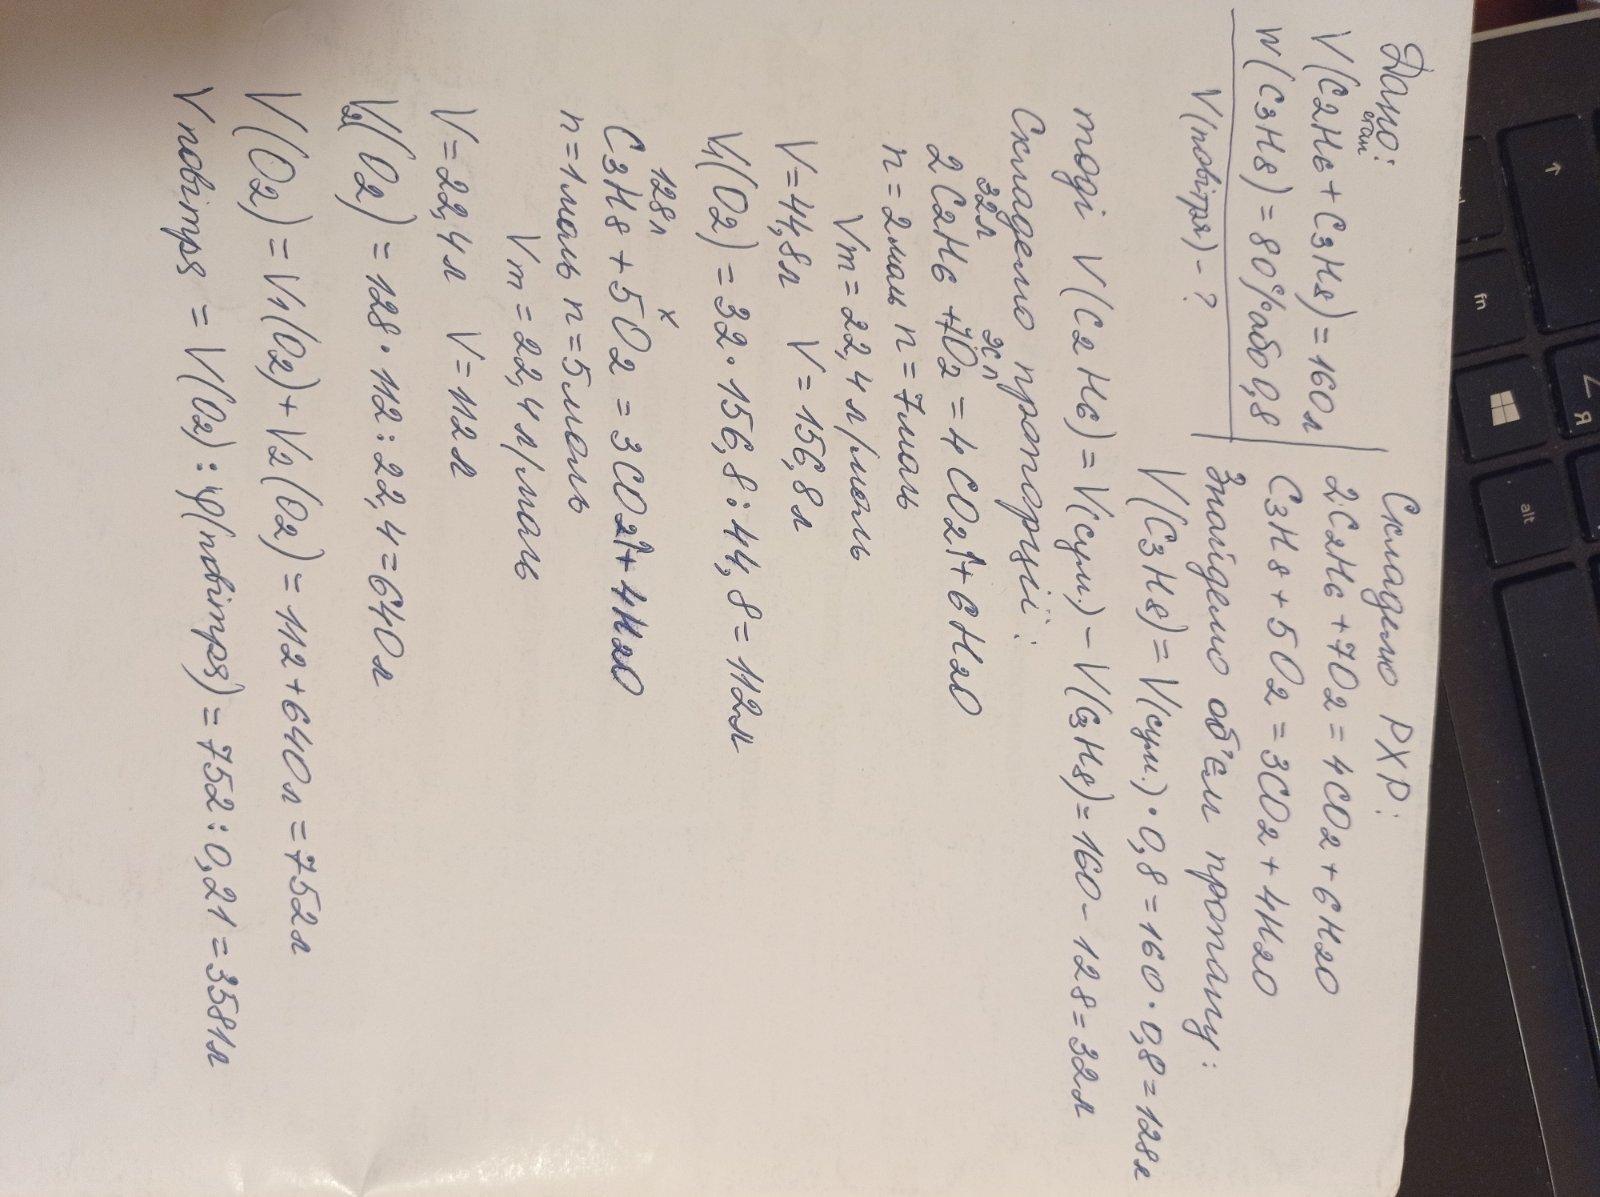 Дано:
етан
V(C2H6 + C3H8) = 160л
w(C3H8) = 80% або 0,8
V(повітря) - ?
Складемо РХР:
2C2H6 + 7O2 = 4CO2 + 6H2O
C3H8 + 5O2 = 3CO2 + 4H2O
Знайдемо об'єм пропану:
V(C3H8) = V(сум.) · 0,8 = 160 · 0,8 = 128л
тоді V(C2H6) = V(сум.) - V(C3H8) = 160 - 128 = 32л
Складемо пропорції:
32л xл
2C2H6 + 7O2 = 4CO2↑ + 6H2O
n = 2моль n = 7моль
Vm = 22,4 л/моль
V = 44,8л V = 156,8л
V1(O2) = 32 · 156,8 : 44,8 = 112л
128л x
C3H8 + 5O2 = 3CO2↑ + 4H2O
n = 1моль n = 5моль
Vm = 22,4 л/моль
V = 22,4л V = 112л
V2(O2) = 128 · 112 : 22,4 = 640л
V(O2) = V1(O2) + V2(O2) = 112 + 640л = 752л
V повітря = V(O2) : φ(повітря) = 752 : 0,21 = 3581л
fn
Z
Я
alt